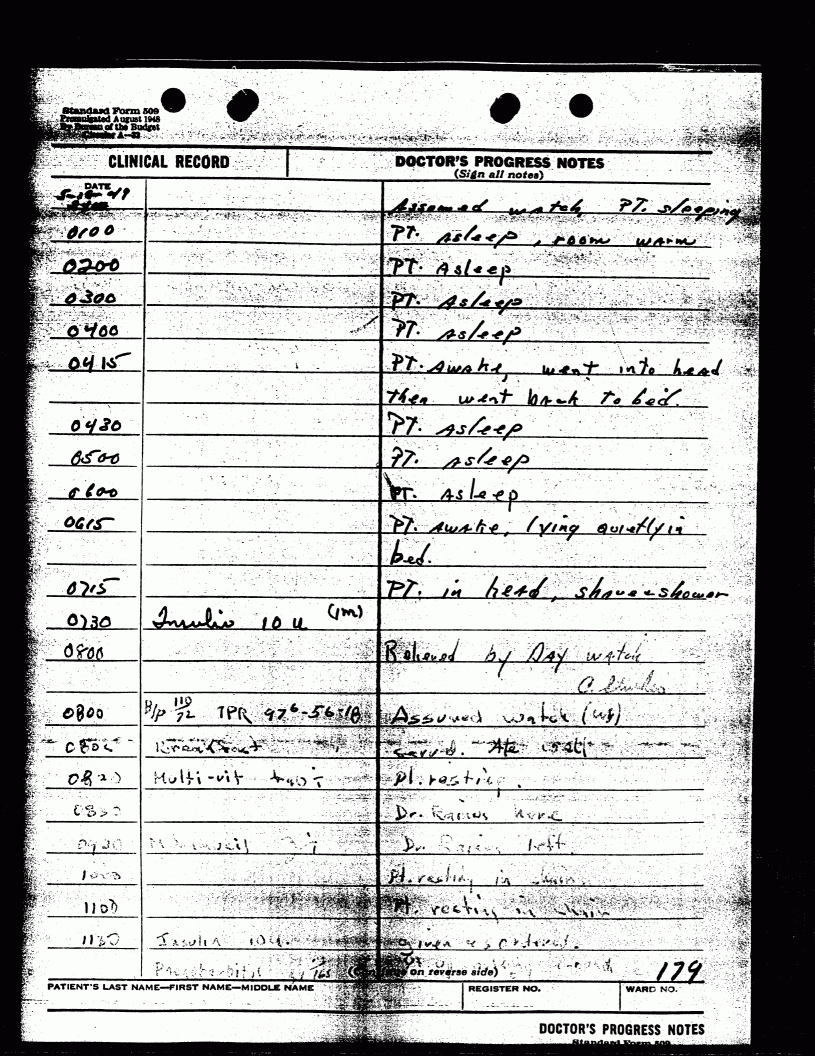 Standard Form 509
Promulgated August 1948
By Bureau of the Budget
Circular A-32
CLINICAL RECORD
DOCTOR'S PROGRESS NOTES
(Sign all notes)
DATE
Assumed watch, PT. sleeping
0100 PT. Asleep, room warm
0200 PT. Asleep
0300 PT. Asleep
0400 PT. Asleep
0415 PT. Awake, went into head
then went back to bed.
0430 PT. Asleep
0500 PT. Asleep
0600 PT. Asleep
0615 PT. Awake, lying quietly in
bed.
0715 PT. in head, shave & shower
0730 Insulin 10 u (IM)
0800 Relieved by Day watch
0800 B/P 110/72 TPR 97⁶-56-18 Assumed watch
Breakfast served. Ate well
0820 Multi-vit Pt. resting.
0830 Dr. Raines here
0930 Dr. Raines left
1000 Pt. resting in chair
1100 Pt. resting in chair
1130 Insulin 10 u. given as ordered.
(Continue on reverse side) 179
PATIENT'S LAST NAME—FIRST NAME—MIDDLE NAME
REGISTER NO.
WARD NO.
DOCTOR'S PROGRESS NOTES
Standard Form 509